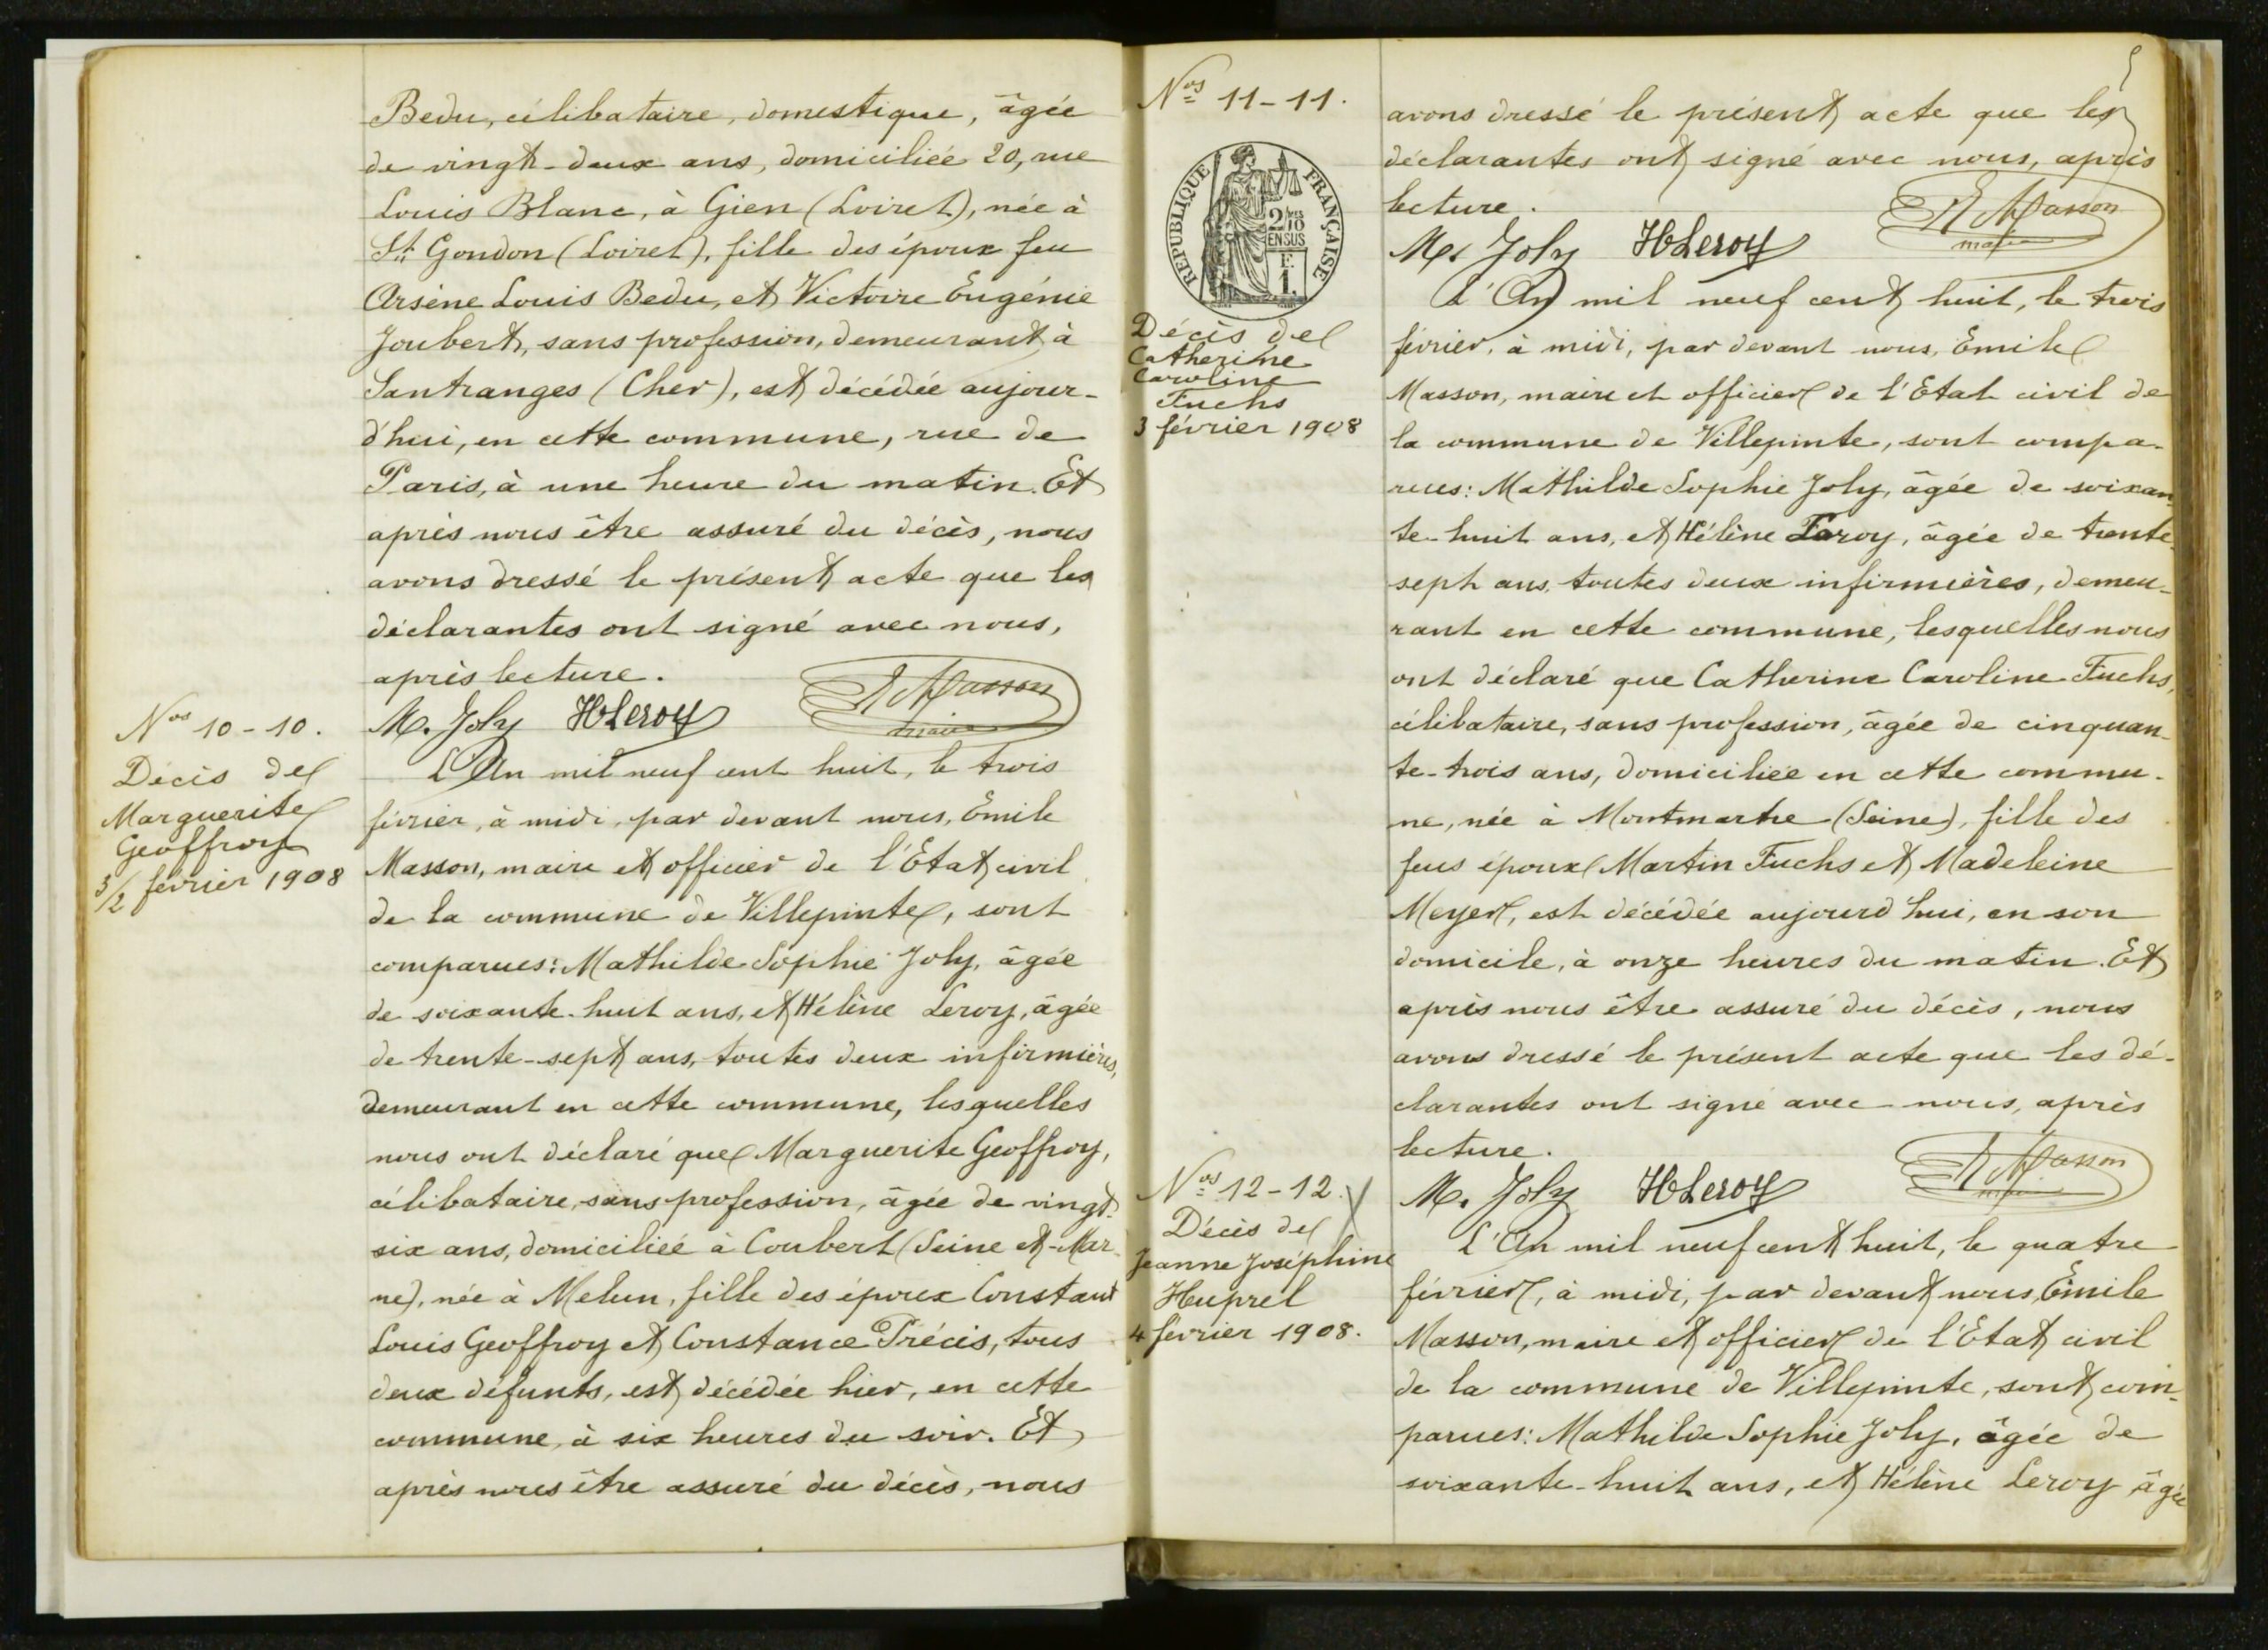 Bedu, célibataire, domestique, âgée
de vingt-deux ans, domiciliée 20, rue
Louis Blanc, à Gien (Loiret), née à
St Gondon (Loiret), fille des époux feu
Arsène Louis Bedu, et Victoire Eugénie
Joubert, sans profession, demeurant à
Santranges (Cher), est décédée aujour-
d'hui, en cette commune, rue de
Paris, à une heure du matin. Et
après nous être assuré du décès, nous
avons dressé le présent acte que les
déclarantes ont signé avec nous,
après lecture.
M. Joly HLeroy E Masson
maire
Nos 10-10.
Décès de
Marguerite
Geoffroy
3/2 février 1908
L'An mil neuf cent huit, le trois
février, à midi, par devant nous, Emile
Masson, maire et officier de l'Etat civil
de la commune de Villepinte, sont
comparues: Mathilde Sophie Joly, âgée
de soixante-huit ans, et Hélène Leroy, âgée
de trente-sept ans, toutes deux infirmières,
demeurant en cette commune, lesquelles
nous ont déclaré que Marguerite Geoffroy,
célibataire, sans profession, âgée de vingt-
six ans, domiciliée à Coubert (Seine et-Mar-
ne), née à Melun, fille des époux Constant
Louis Geoffroy et Constance Précis, tous
deux défunts, est décédée hier, en cette
commune, à six heures du soir. Et
après nous être assuré du décès, nous
Nos 11-11.
REPUBLIQUE FRANÇAISE
2/10
EN SUS
F.
1.
Décès de
Catherine
Caroline
Fuchs
3 février 1908
avons dressé le présent acte que les
déclarantes ont signé avec nous, après
lecture.
M. Joly HLeroy E Masson
maire
L'An mil neuf cent huit, le trois
février, à midi, par devant nous, Emile
Masson, maire et officier de l'Etat civil de
la commune de Villepinte, sont compa-
rues: Mathilde Sophie Joly, âgée de soixan-
te-huit ans, et Hélène Leroy, âgée de trente-
sept ans, toutes deux infirmières, demeu-
rant en cette commune, lesquelles nous
ont déclaré que Catherine Caroline Fuchs,
célibataire, sans profession, âgée de cinquan-
te-trois ans, domiciliée en cette commu-
ne, née à Montmartre (Seine), fille des
feus époux Martin Fuchs et Madeleine
Meyer, est décédée aujourd'hui, en son
domicile, à onze heures du matin. Et
après nous être assuré du décès, nous
avons dressé le présent acte que les dé-
clarantes ont signé avec nous, après
lecture.
M. Joly HLeroy E Masson
maire
Nos 12-12.
Décès de
Jeanne Joséphine
Huprel
4 février 1908.
L'An mil neuf cent huit, le quatre
février, à midi, par devant nous, Emile
Masson, maire et officier de l'Etat civil
de la commune de Villepinte, sont com-
parues: Mathilde Sophie Joly, âgée de
soixante-huit ans, et Hélène Leroy âgée